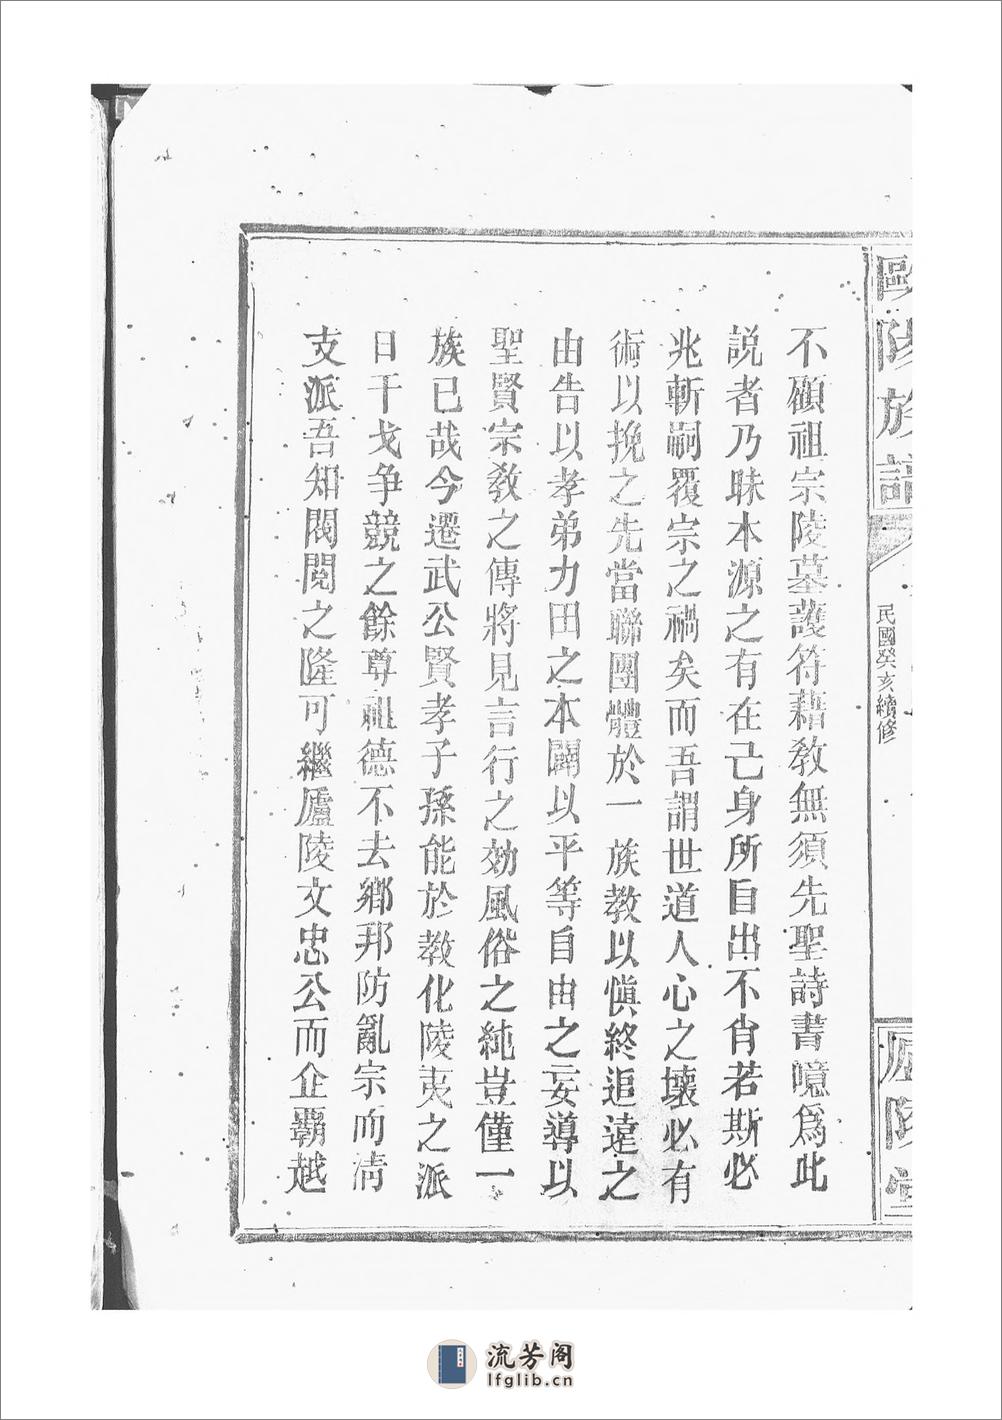 歐陽族譜
民國癸亥續修
廬陵堂
不顧祖宗陵墓護符藉教無須先聖詩書噫爲此
説者乃昧本源之有在己身所自出不肖若斯必
兆斬嗣覆宗之禍矣而吾謂世道人心之壞必有
術以挽之先當聯團體於一族教以慎終追遠之
由告以孝弟力田之本闢以平等自由之妄導以
聖賢宗教之傳將見言行之効風俗之純豈僅一
族已哉今遷武公賢孝子孫能於教化陵夷之派
日干戈争競之餘尊祖德不去鄉邦防亂宗而淸
支派吾知閥閲之隆可繼廬陵文忠公而企覇越
流芳阁
lfglib.cn